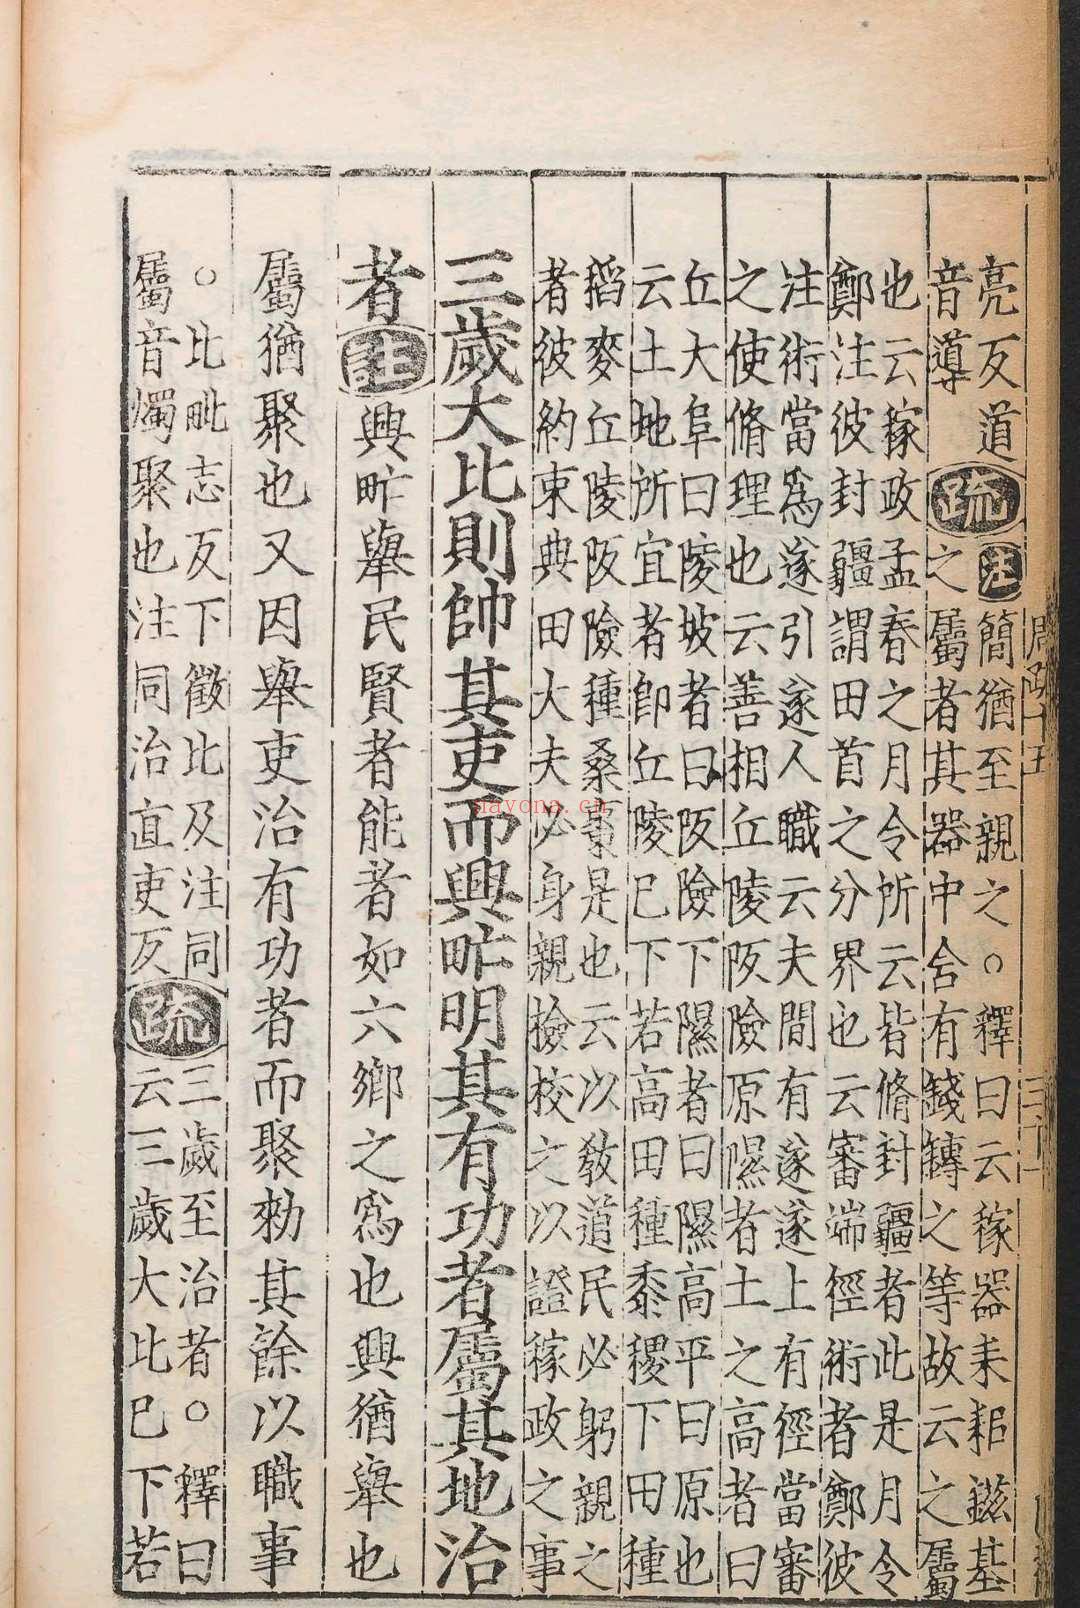 亮反道
音導
疏
注簡猶至親之○釋曰云稼器耒耜鎡基
之屬者其器中含有錢鎛之等故云之屬
也云稼政孟春之月令所云皆脩封疆者此是月令
鄭注彼封疆謂田首之分界也云審端徑術者鄭彼
注術當爲遂引遂人職云夫間有遂遂上有徑當審
之使脩理也云善相丘陵阪險原隰者土之高者曰
丘大阜曰陵坡者曰阪險下隰者曰隰高平曰原也
云土地所宜者卽丘陵巳下若高田種黍稷下田種
稻麥丘陵阪險種桑棗是也云以敎道民必躬親之
者彼約束典田大夫必身親撿校之以證稼政之事
三歲大比則帥其吏而興甿明其有功者屬其地治
者註興甿舉民賢者能者如六鄉之爲也興猶舉也
屬猶聚也又因舉吏治有功者而聚勑其餘以職事
○比毗志反下徵比及注同
屬音燭聚也注同治直吏反
疏
三歲至治者○釋曰
云三歲大比巳下若
nayona.cn